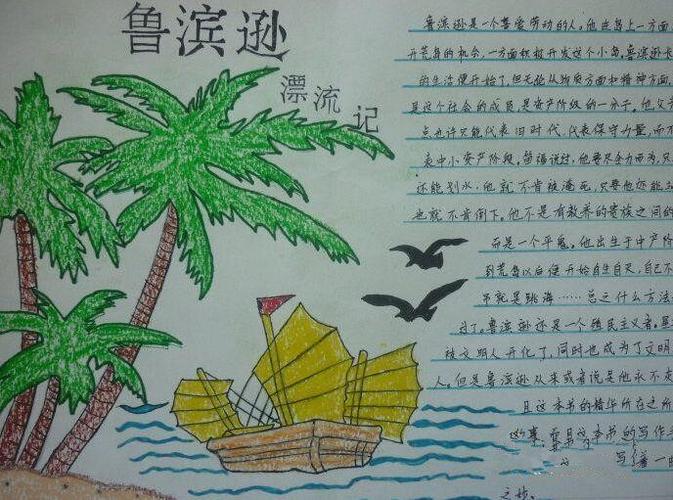 鲁滨逊
漂流记
鲁滨逊是一个喜爱劳动的人。他在岛上一方面
开荒岛的机会,一方面积极开发这个小岛,鲁滨逊
的生活便开始了,但无论从物质方面和精神方面,
是这个社会的成员,是资产阶级的一分子。他父
点也许只能代表旧时代,代表保守力量,而不
表中小资产阶段,笛福说过,他要尽全力而为,只
还能划水,他就不肯被淹死,只要他还能
也就不肯倒下。他不是有教养的贵族之间的
而是一个平鬼。他出生于中产阶
到荒岛以后便开始自生自灭,自己不
吊就是跳海……总之什么方法
过了。鲁滨逊还是一个殖民主义者。
被文明人开化了,同时也成为了文明
人。但是鲁滨逊从来或者说是他永不
且这本书的精华所在之所
这本书的写作
写着一
之妙。